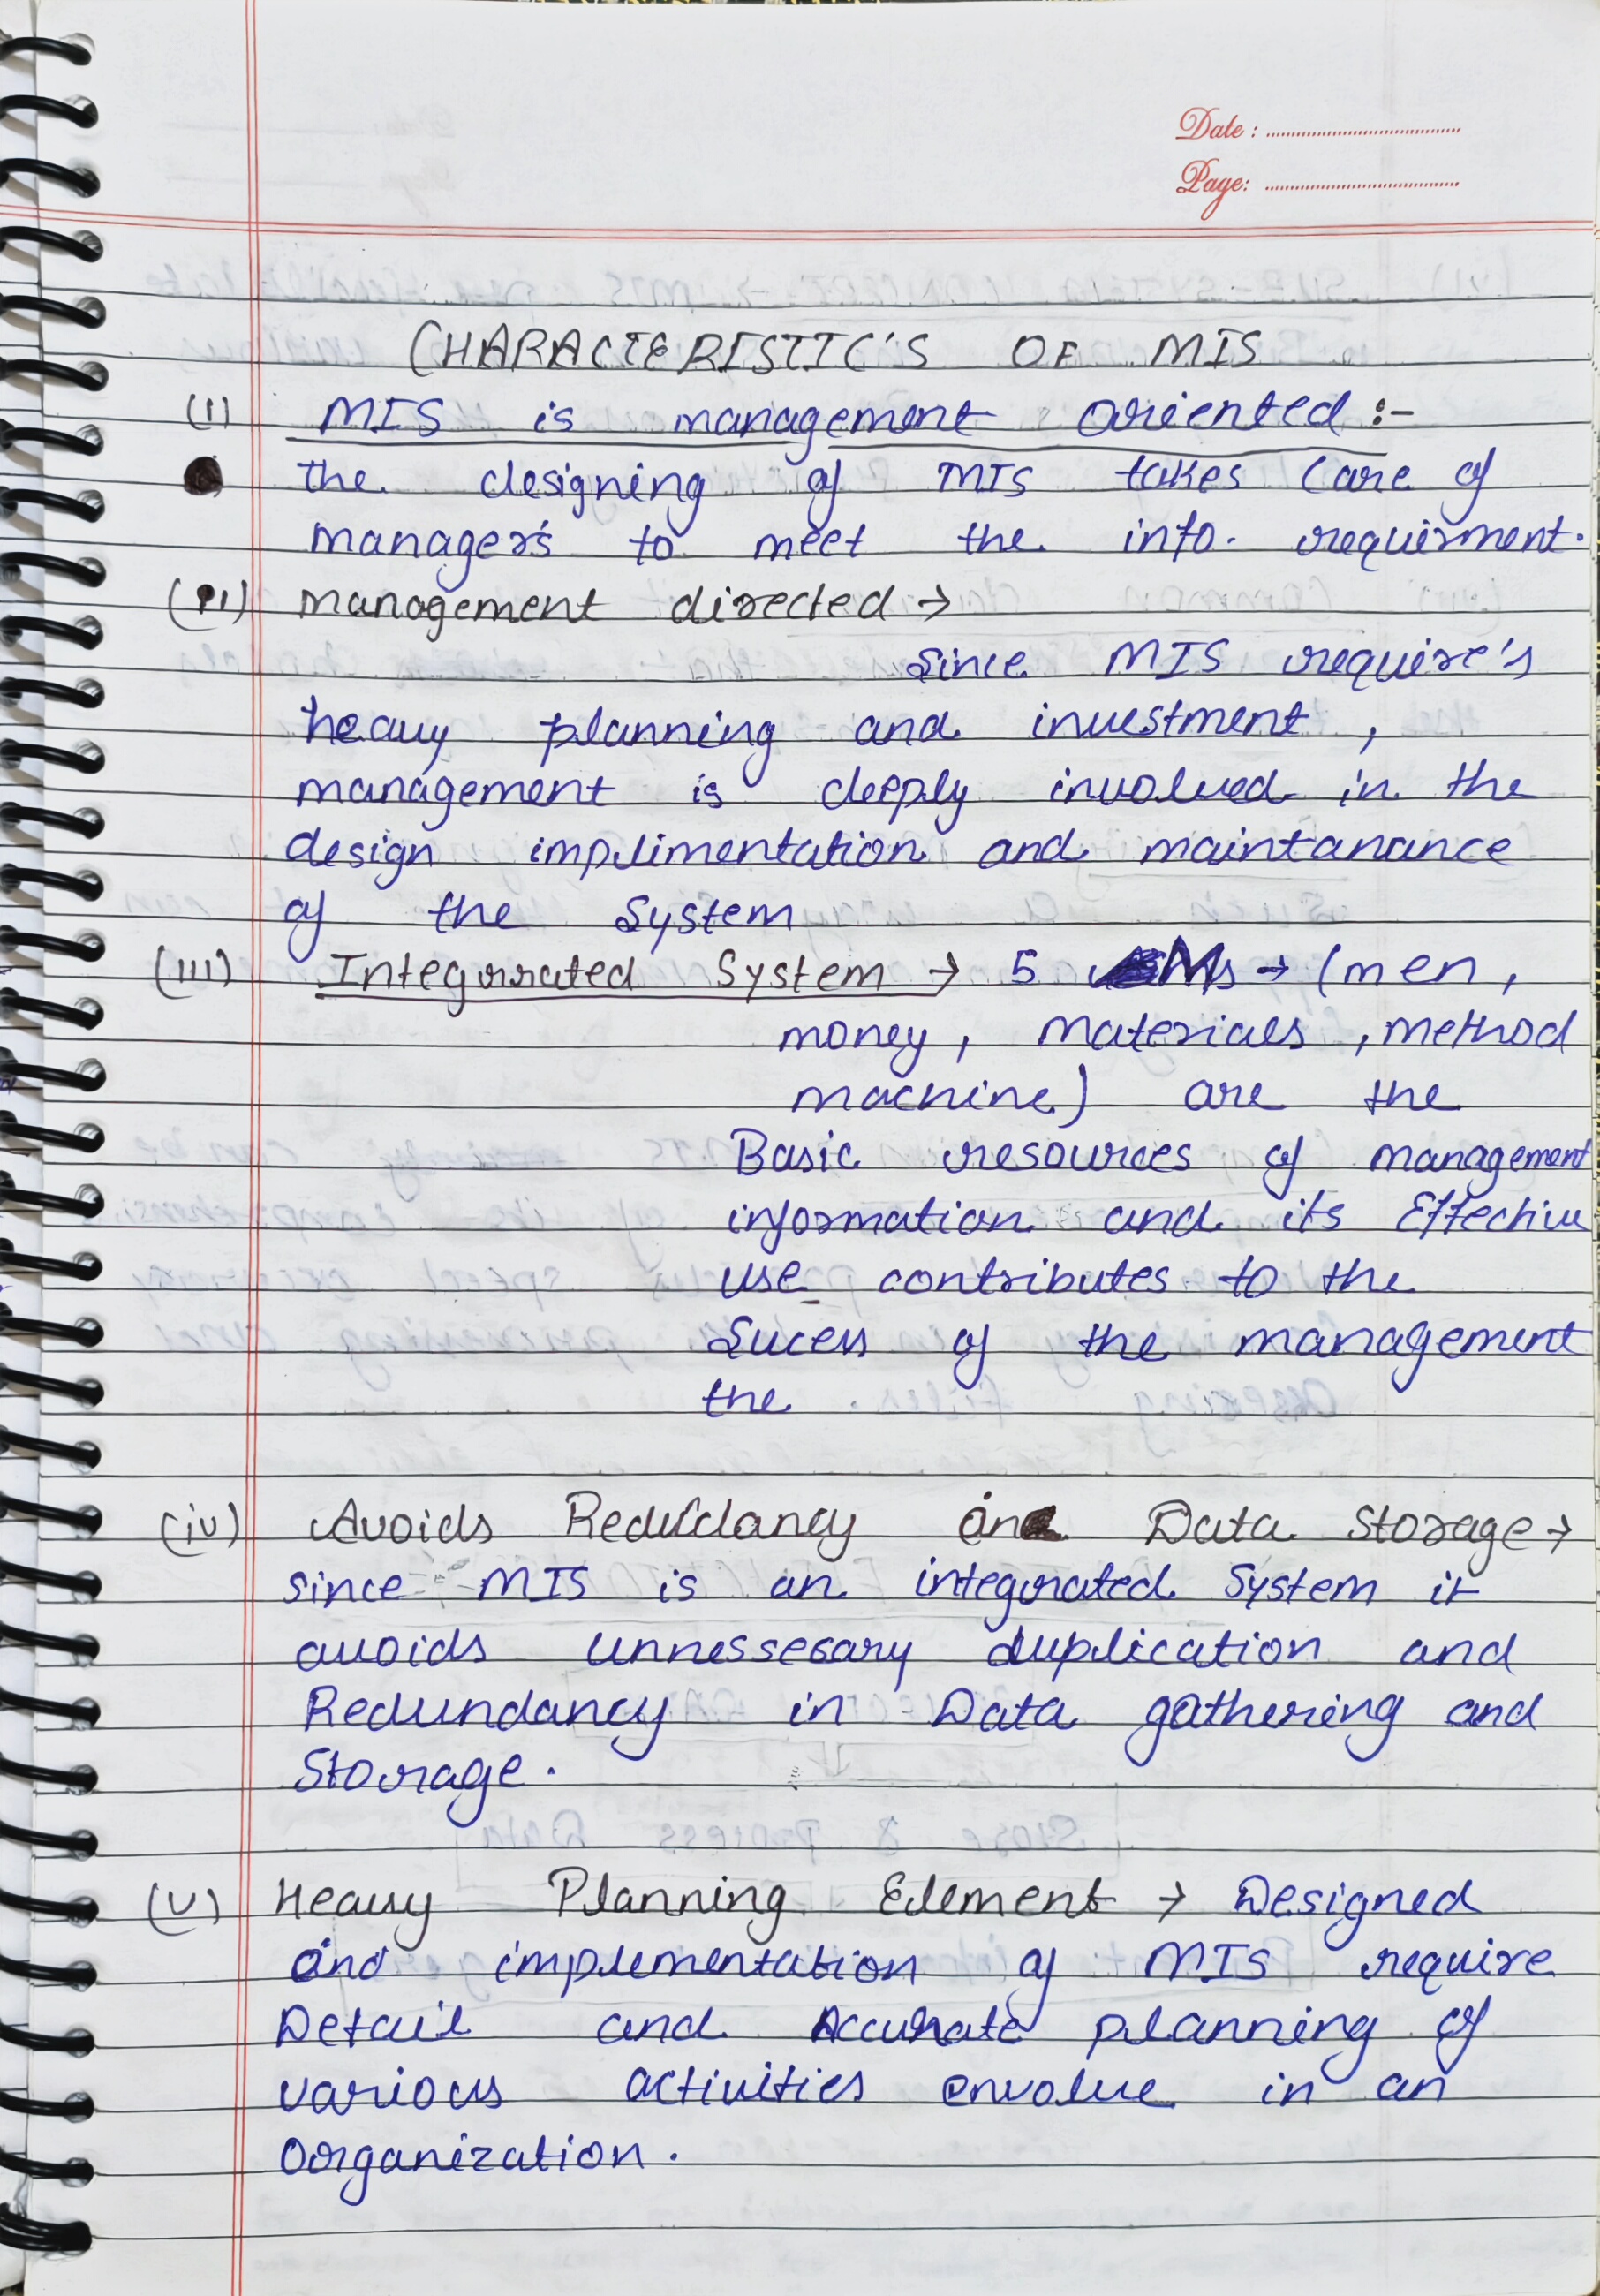 Date : ....................
Page: ....................
CHARACTERISTIC'S OF MIS
(I) MIS is management oriented :-
the designing of MIS takes care of
manager's to meet the info. requirment.
(II) management directed →
Since MIS require's
heavy planning and investment ,
management is deeply involved in the
design implimentation and maintanance
of the System
(III) Integrated System → 5 Ms → (men ,
money , materials , method
machine) are the
Basic resources of management
information and its Effective
use contributes to the
Sucess of the management
the .
(iv) Avoids Redudancy in Data Storage →
since MIS is an integrated System it
avoids unnessesary duplication and
Redundancy in Data gathering and
Storage .
(v) Heavy Planning Element → Designed
and implementation of MIS require
Detail and Accurate planning of
various activities envolve in an
Organization .